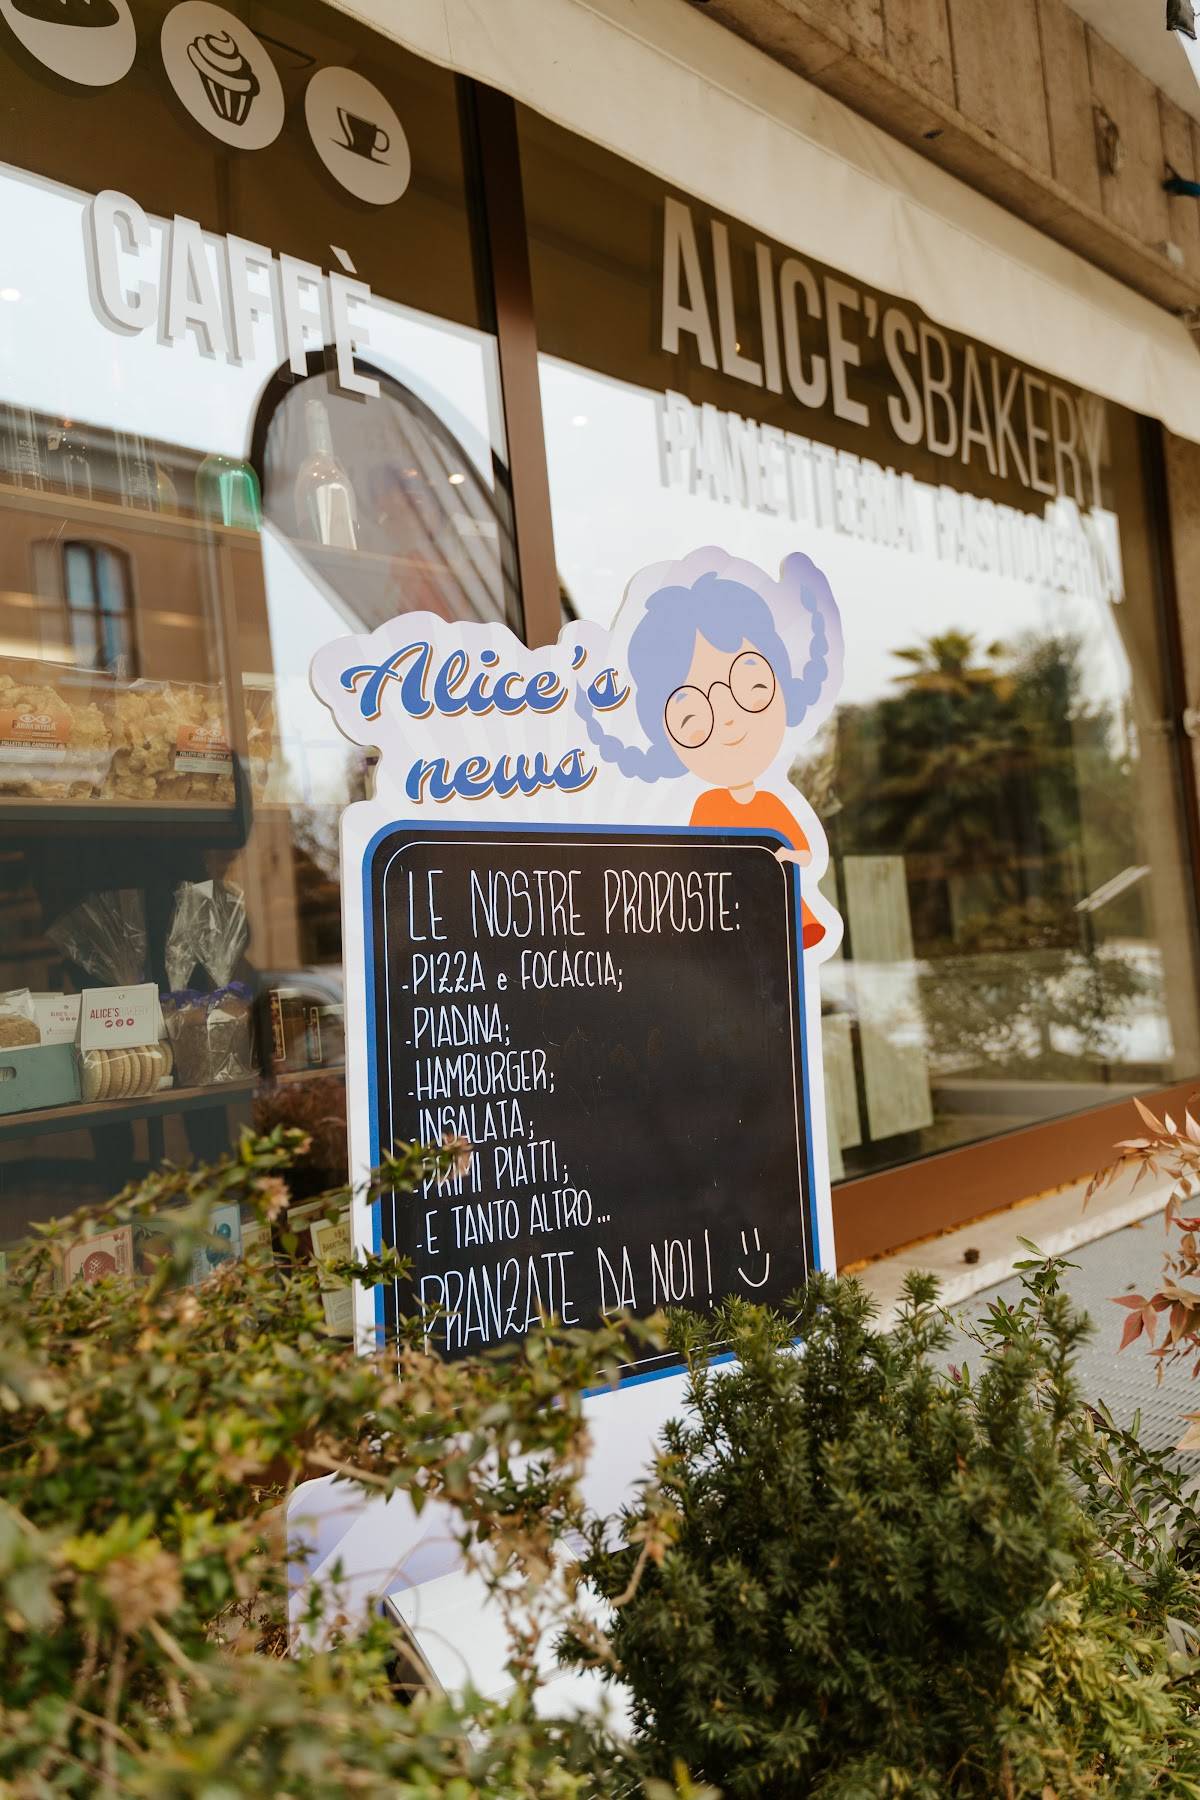 CAFFÈ
ALICE'SBAKERY
PANETTERIA PASTICCERIA
Alice's
news
LE NOSTRE PROPOSTE:
-PIZZA e FOCACCIA;
-PIADINA;
-HAMBURGER;
-INSALATA;
-PRIMI PIATTI;
-E TANTO ALTRO...
PRANZATE DA NOI!
ALICE'SBAKERY